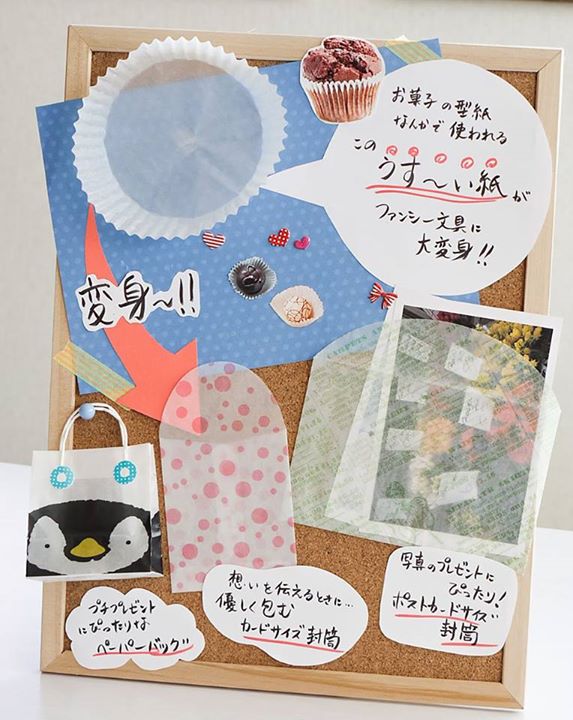 お菓子の型紙
なんかで使われる
この
うす〜い紙が
ファンシー文具に
大変身!!
変身〜!!
プチプレゼント
にぴったりな
ペーパーバッグ
想いを伝えるときに…
優しく包む
カードサイズ封筒
写真のプレゼントに
ぴったり!
ポストカードサイズ
封筒